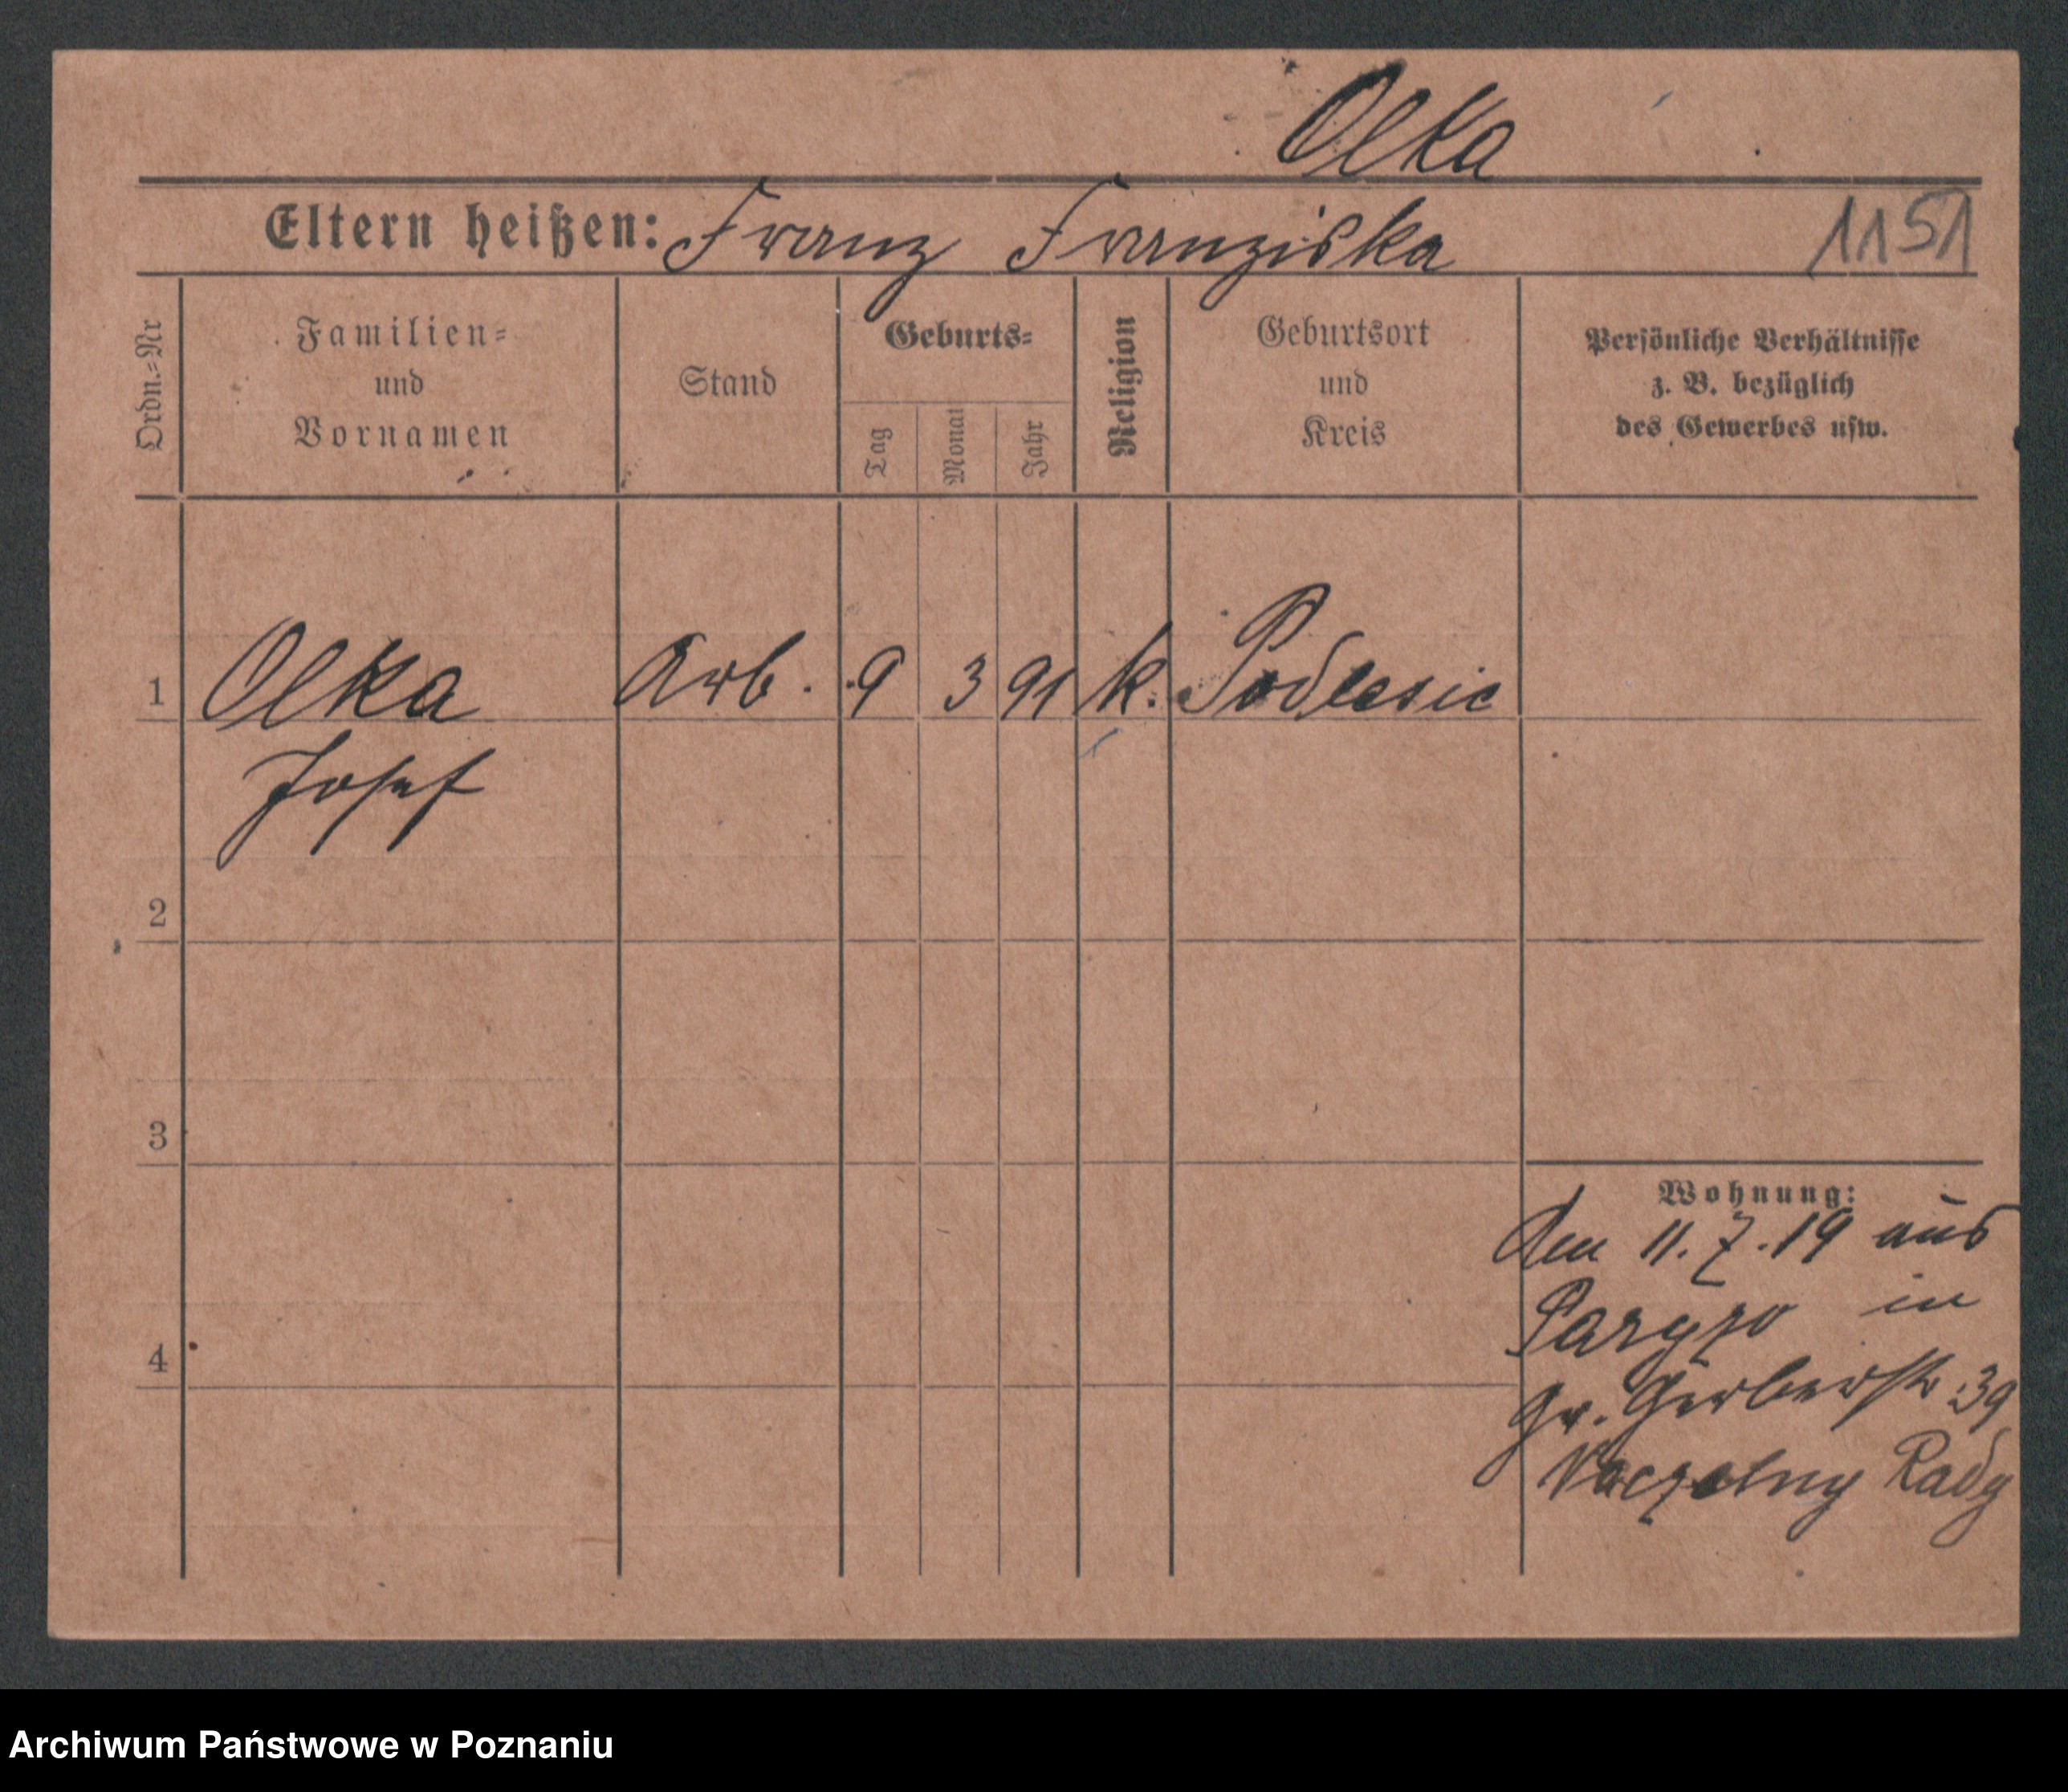 Olka
Eltern heißen: Franz Franziska
1151
Ordn.=Nr
Familien=
und
Vornamen
Stand
Geburts=
Tag
Monat
Jahr
Religion
Geburtsort
und
Kreis
Persönliche Verhältnisse
z. B. bezüglich
des Gewerbes usw.
1 Olka Arb. 9 3 91 k. Podlesie
Josef
2
3
4
Wohnung:
den 11. 7. 19 aus
in
Gr. Gerberstr. 39
Rady
Archiwum Państwowe w Poznaniu